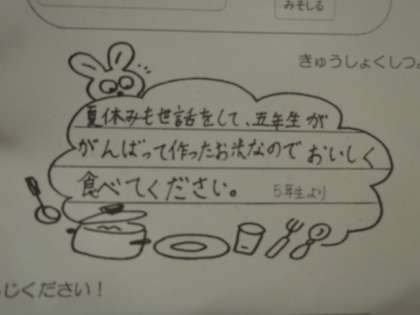 みそしる
きゅうしょくしつ
夏休みも世話をして、五年生が
がんばって作ったお米なので おいしく
食べてください。 5年生より
じください！